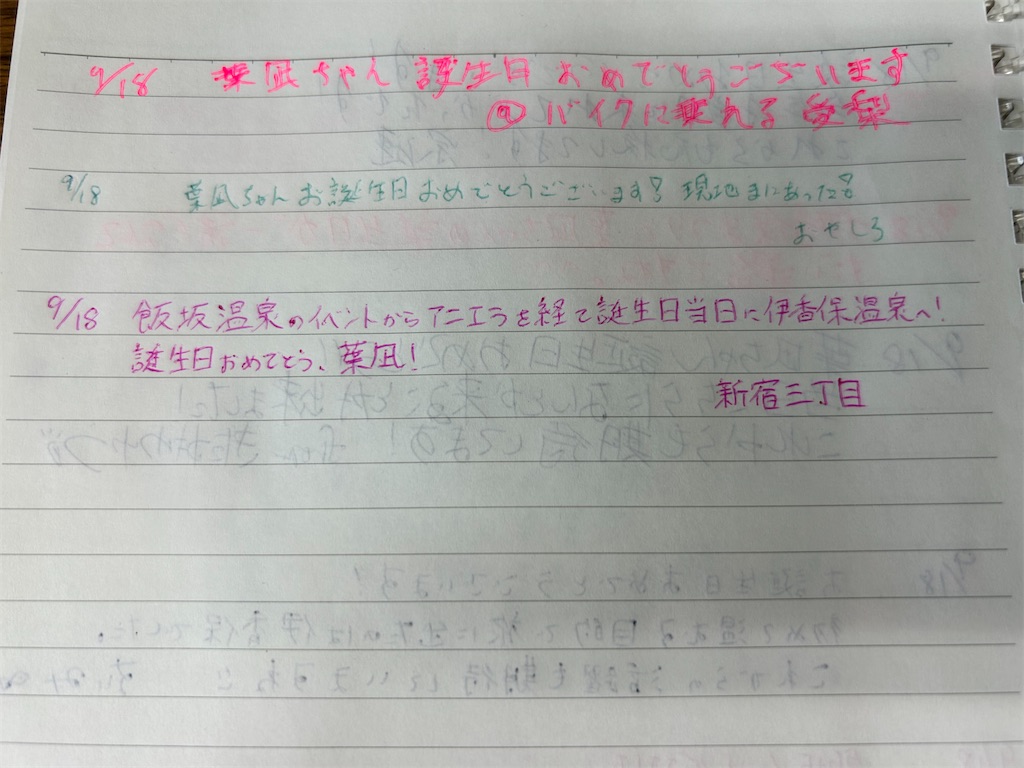 9/18 葉凪ちゃん 誕生日 おめでとうございます
@バイクに乗れる
9/18 葉凪ちゃんお誕生日おめでとうございます! 現地まにあった!
おやしろ
9/18 飯坂温泉のイベントからアニエラを経て誕生日当日に伊香保温泉へ!
誕生日おめでとう、葉凪!
新宿三丁目